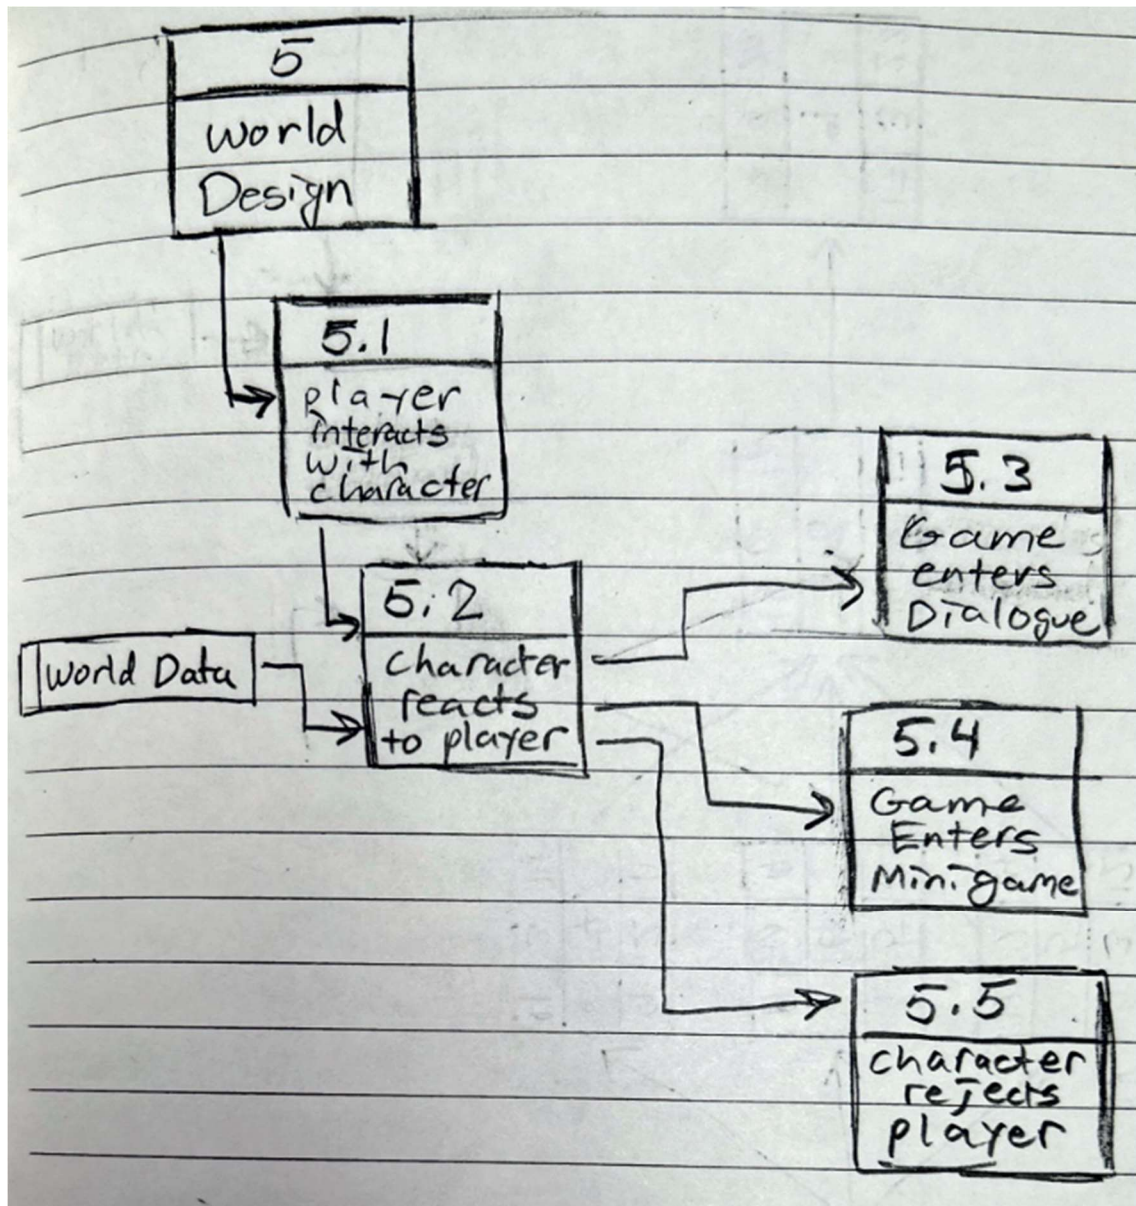 5
world
Design
5.1
player
interacts
with
character
5.2
Character
reacts
to player
World Data
5.3
Game
enters
Dialogue
5.4
Game
Enters
Minigame
5.5
character
rejects
player